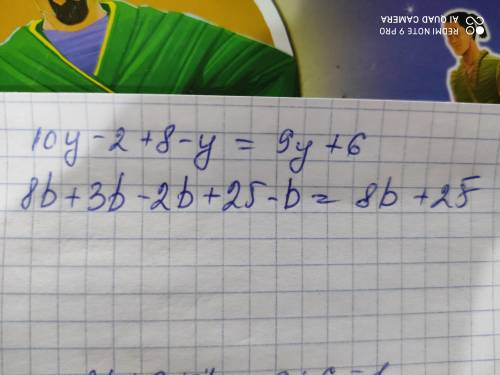 REDMI NOTE 9 PRO
AI QUAD CAMERA
10y - 2 + 8 - y = 9y + 6
8b + 3b - 2b + 25 - b = 8b + 25